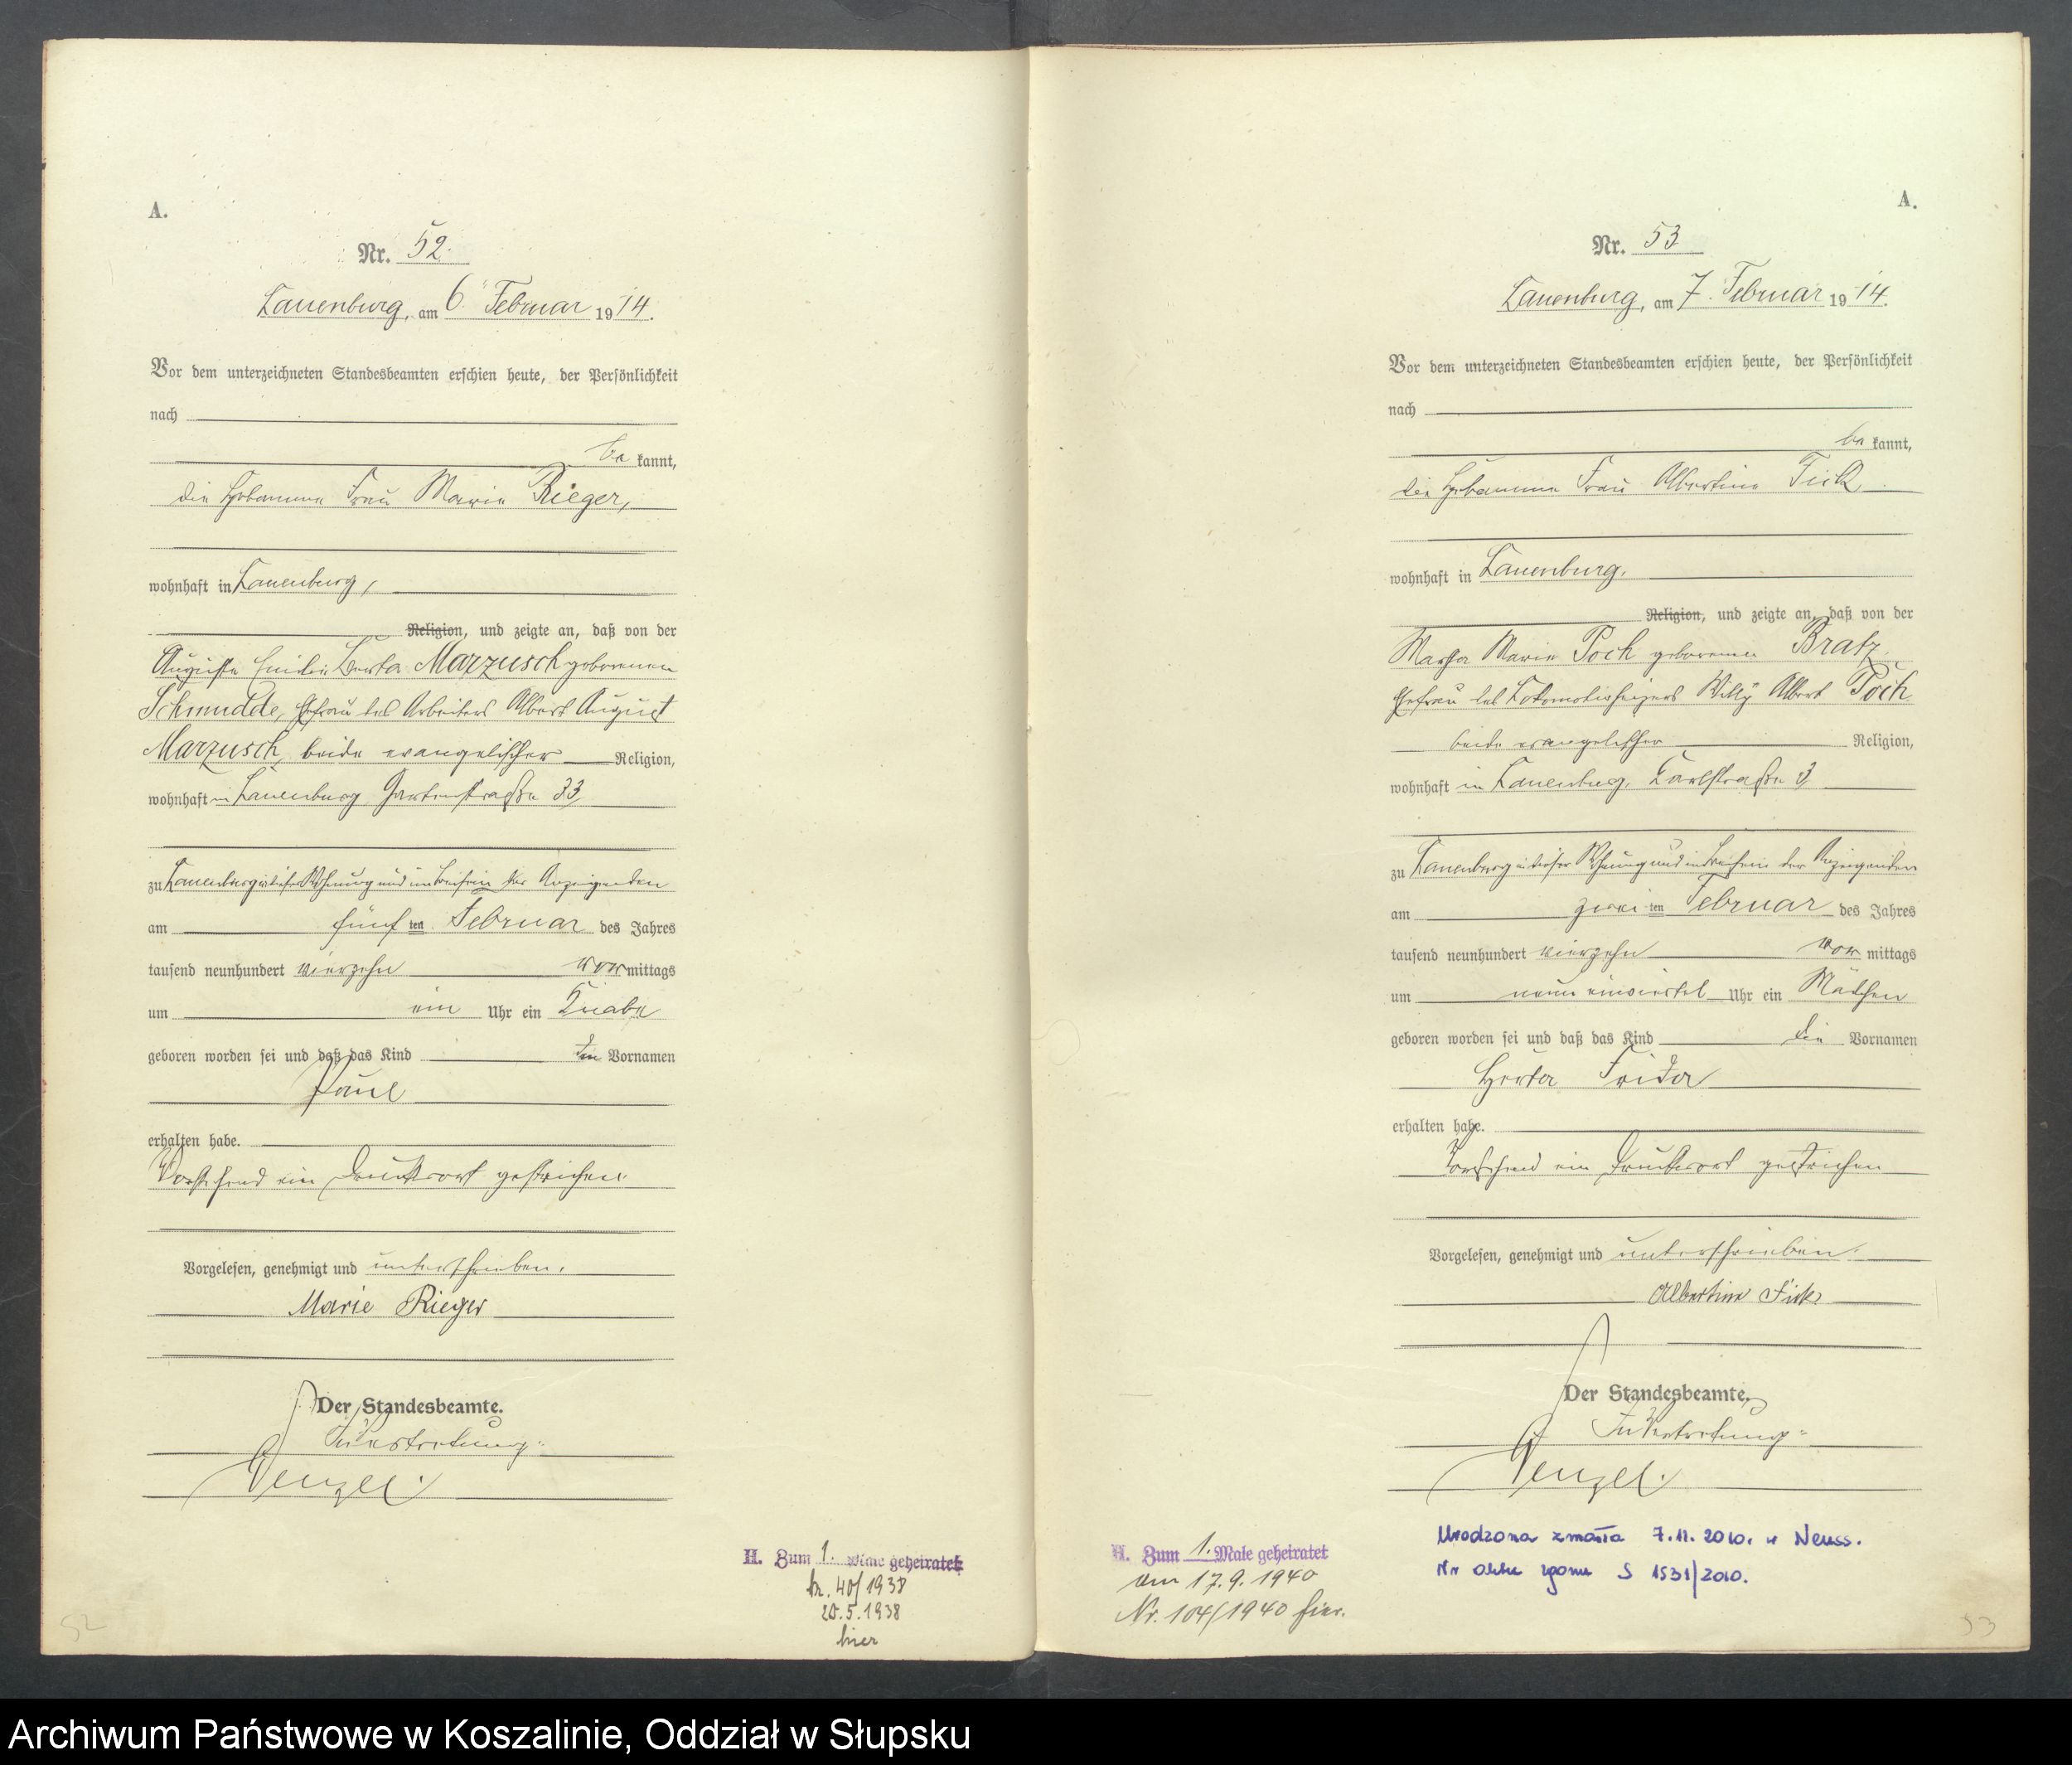 A.
Nr. 52.
Lauenburg, am 6. Februar 1914.
Vor dem unterzeichneten Standesbeamten erschien heute, der Persönlichkeit
nach
be kannt,
die Hebamme Frau Marie Rieger,
wohnhaft in Lauenburg,
Religion, und zeigte an, daß von der
Auguste Emilie Berta Marzusch geborenen
Schmudde, Ehefrau des Arbeiters Albert August
Marzusch, beide evangelischer Religion,
wohnhaft in Lauenburg Gartenstraße 33,
zu Lauenburg in dieser Wohnung und im Beisein der Anzeigenden
am fünf ten Februar des Jahres
tausend neunhundert vierzehn vor mittags
um ein Uhr ein Knabe
geboren worden sei und daß das Kind den Vornamen
Paul
erhalten habe.
Vorstehend ein Druckwort gestrichen.
Vorgelesen, genehmigt und unterschrieben.
Marie Rieger
Der Standesbeamte.
In Vertretung:
Wenzel.
H. Zum 1. Male geheiratet
Nr. 40/1938
20.5.1938
hier
52
A.
Nr. 53
Lauenburg, am 7. Februar 1914.
Vor dem unterzeichneten Standesbeamten erschien heute, der Persönlichkeit
nach
be kannt,
die Hebamme Frau Albertine Fick
wohnhaft in Lauenburg,
Religion, und zeigte an, daß von der
Martha Marie Poch geborenen Bratz,
Ehefrau des Lokomotivheizers Willy Albert Poch
beide evangelischer Religion,
wohnhaft in Lauenburg, Karlstraße 3,
zu Lauenburg in dieser Wohnung und im Beisein der Anzeigenden
am zwei ten Februar des Jahres
tausend neunhundert vierzehn vor mittags
um neun einviertel Uhr ein Mädchen
geboren worden sei und daß das Kind die Vornamen
Herta Frida
erhalten habe.
Vorstehend ein Druckwort gestrichen
Vorgelesen, genehmigt und unterschrieben.
Albertine Fick
Der Standesbeamte.
In Vertretung:
Wenzel.
H. Zum 1. Male geheiratet
am 17.9.1940
Nr. 104/1940 hier.
Urodzona zmarła 7.11.2010. w Neuss.
Nr aktu zgonu S 1531/2010.
53
Archiwum Państwowe w Koszalinie, Oddział w Słupsku